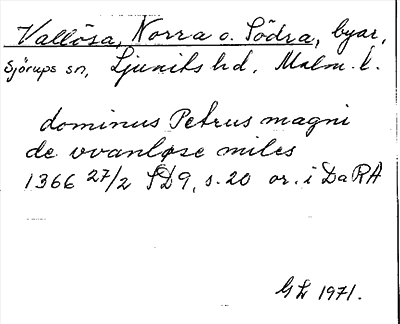 Vallösa, Norra o. Södra, byar,
Sjörups sn, Ljunits hd, Malm. l.
dominus Petrus magni
de vvanløse miles
1366 27/2 SD9, s. 20 or. i DaRA
GL 1971.